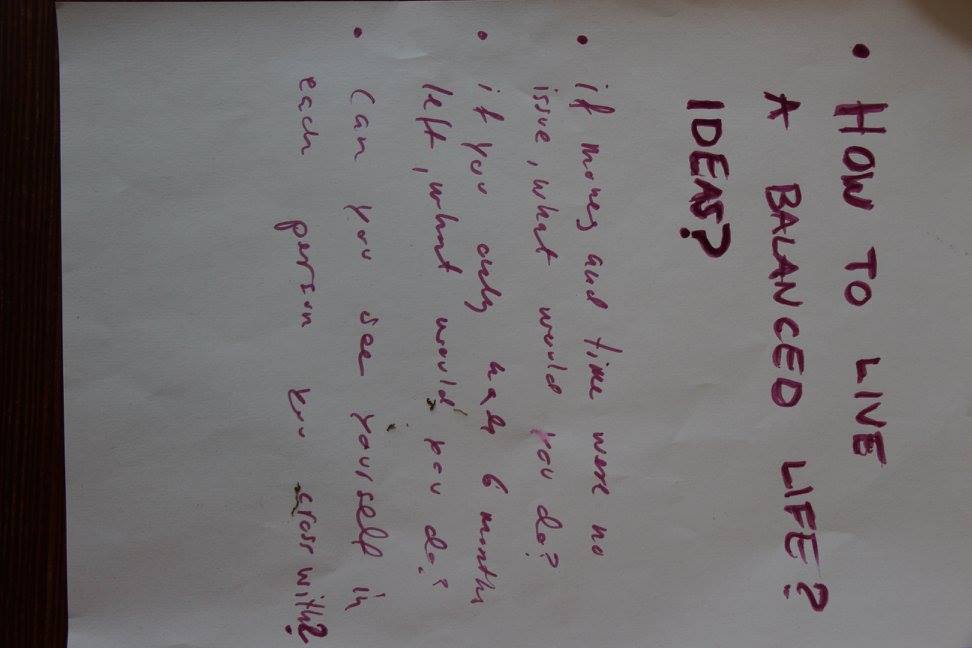 • HOW TO LIVE
A BALANCED LIFE?
IDEAS?
• if money and time were no
issue, what would you do?
• if you only had 6 months
left, what would you do?
• Can you see yourself in
each person you cross with?